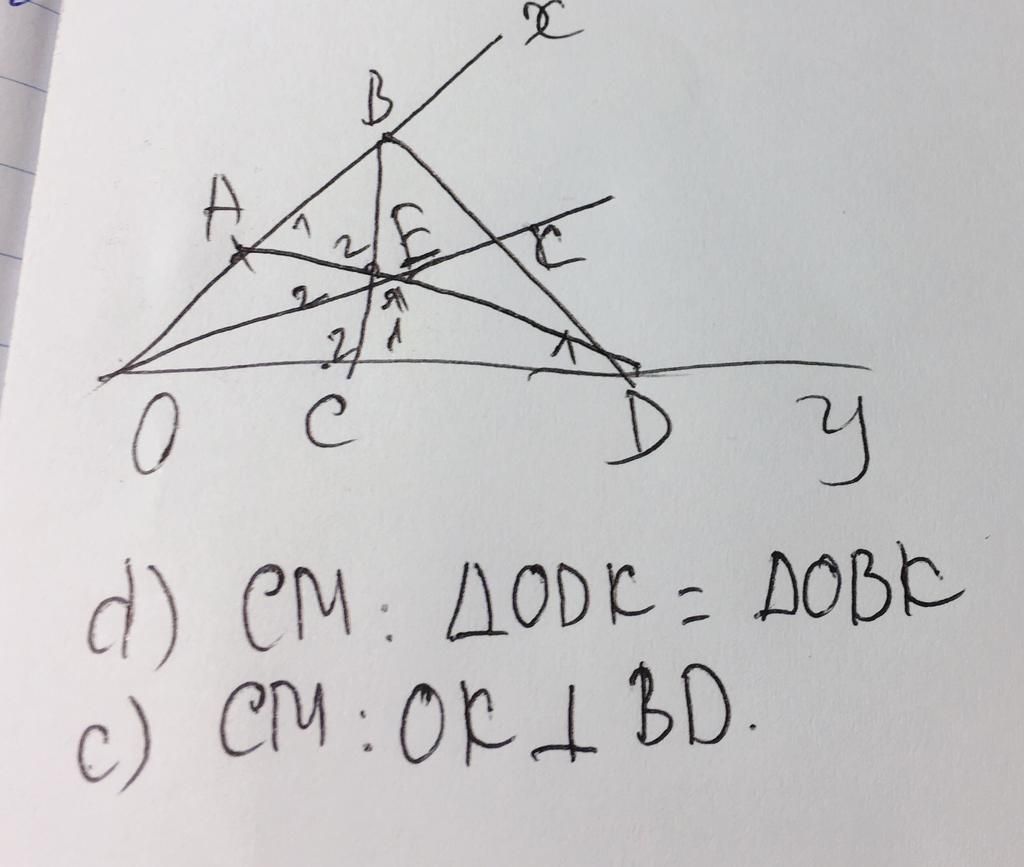 x
B
A
1
2
E
K
2
1
2
1
1
O
C
D
y
d) CM: ΔODK = ΔOBK
c) CM: OK ⊥ BD.